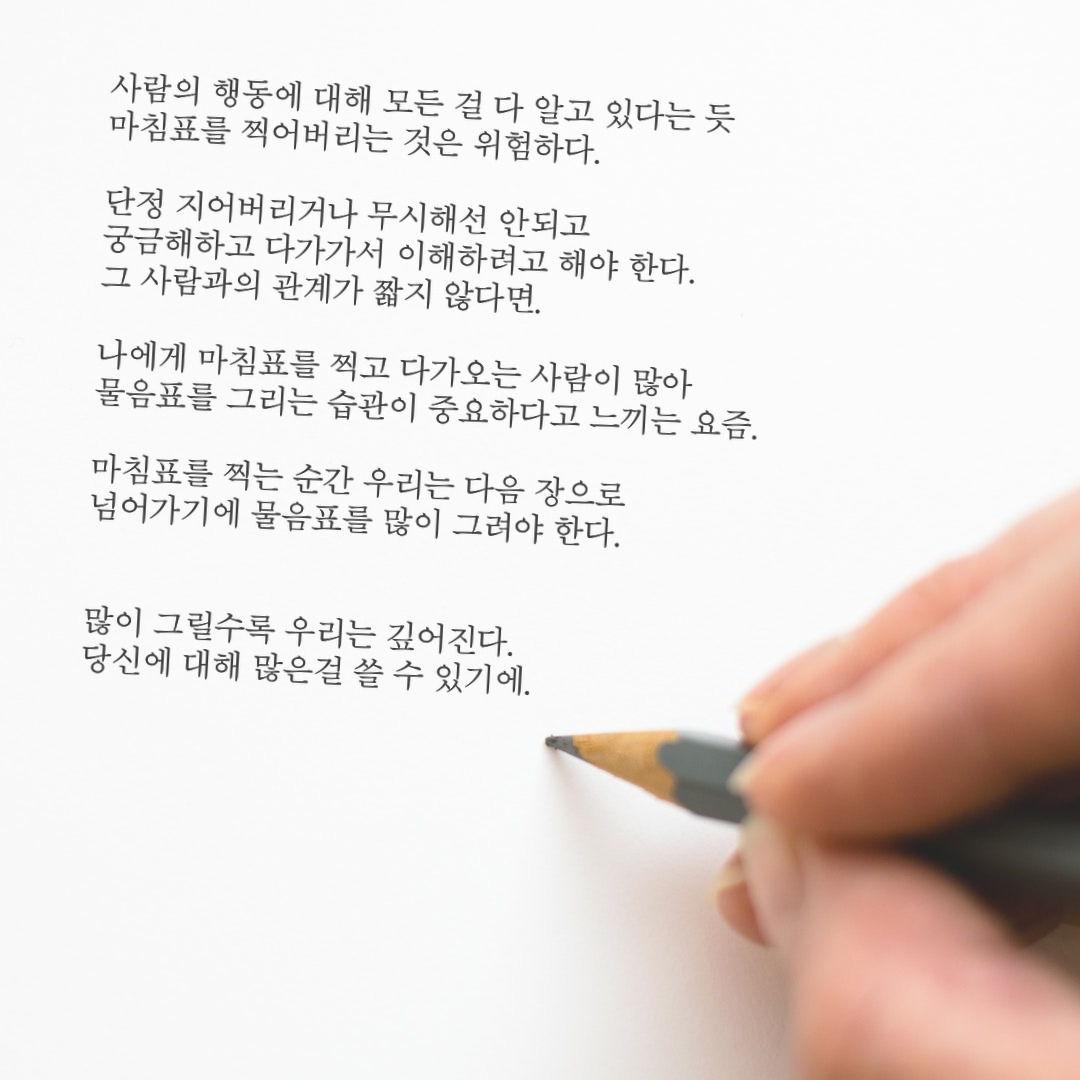 사람의 행동에 대해 모든 걸 다 알고 있다는 듯
마침표를 찍어버리는 것은 위험하다.
단정 지어버리거나 무시해선 안되고
궁금해하고 다가가서 이해하려고 해야 한다.
그 사람과의 관계가 짧지 않다면.
나에게 마침표를 찍고 다가오는 사람이 많아
물음표를 그리는 습관이 중요하다고 느끼는 요즘.
마침표를 찍는 순간 우리는 다음 장으로
넘어가기에 물음표를 많이 그려야 한다.
많이 그릴수록 우리는 깊어진다.
당신에 대해 많은걸 쓸 수 있기에.